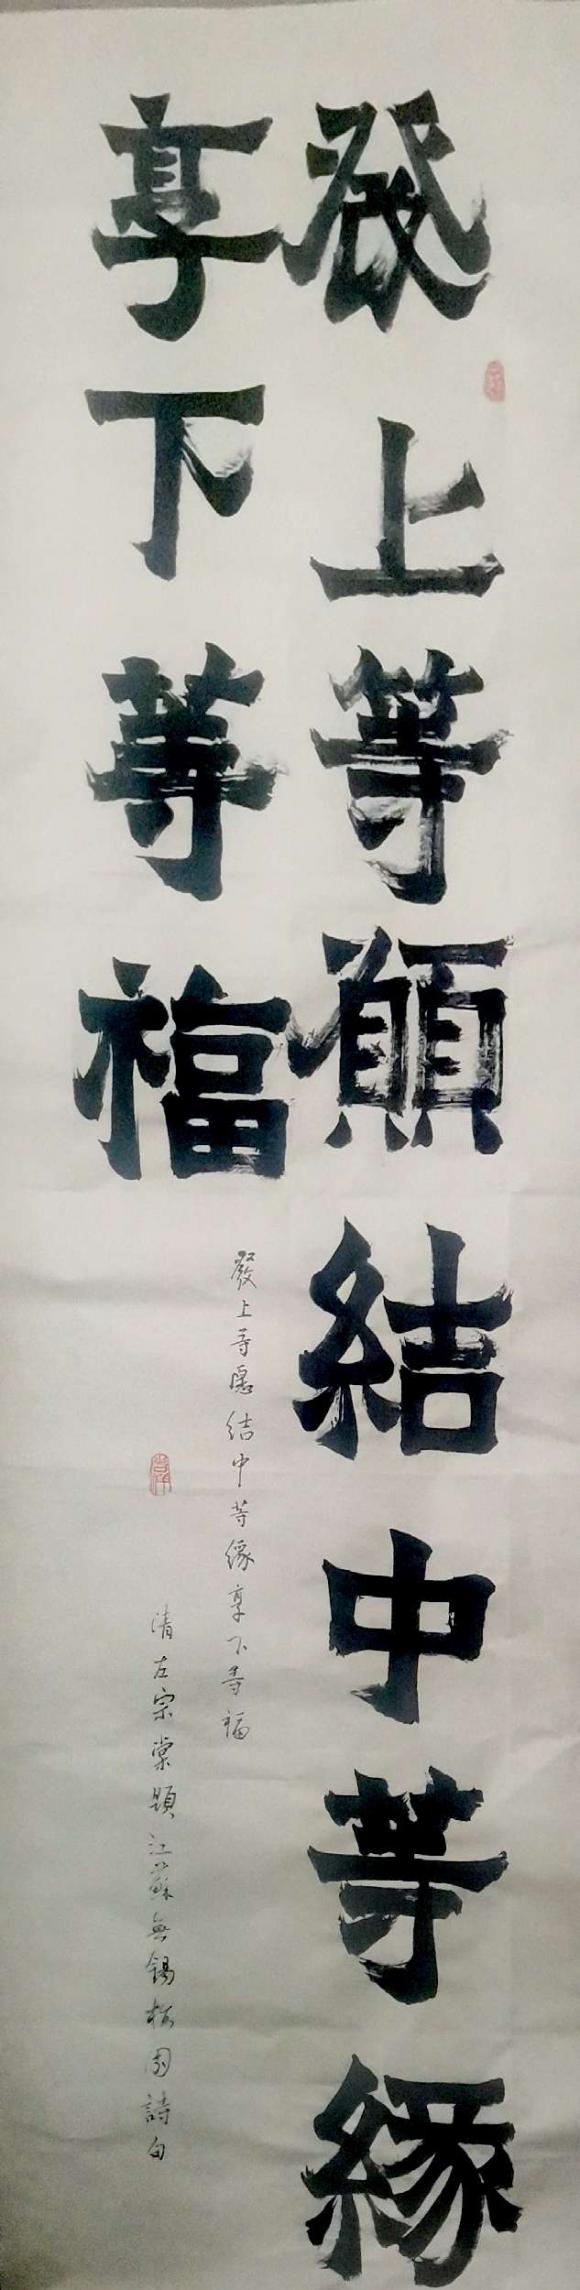 發上等願結中等緣
享下等福
發上等愿结中等緣享下等福
清左宗棠題江蘇無錫梅園詩句